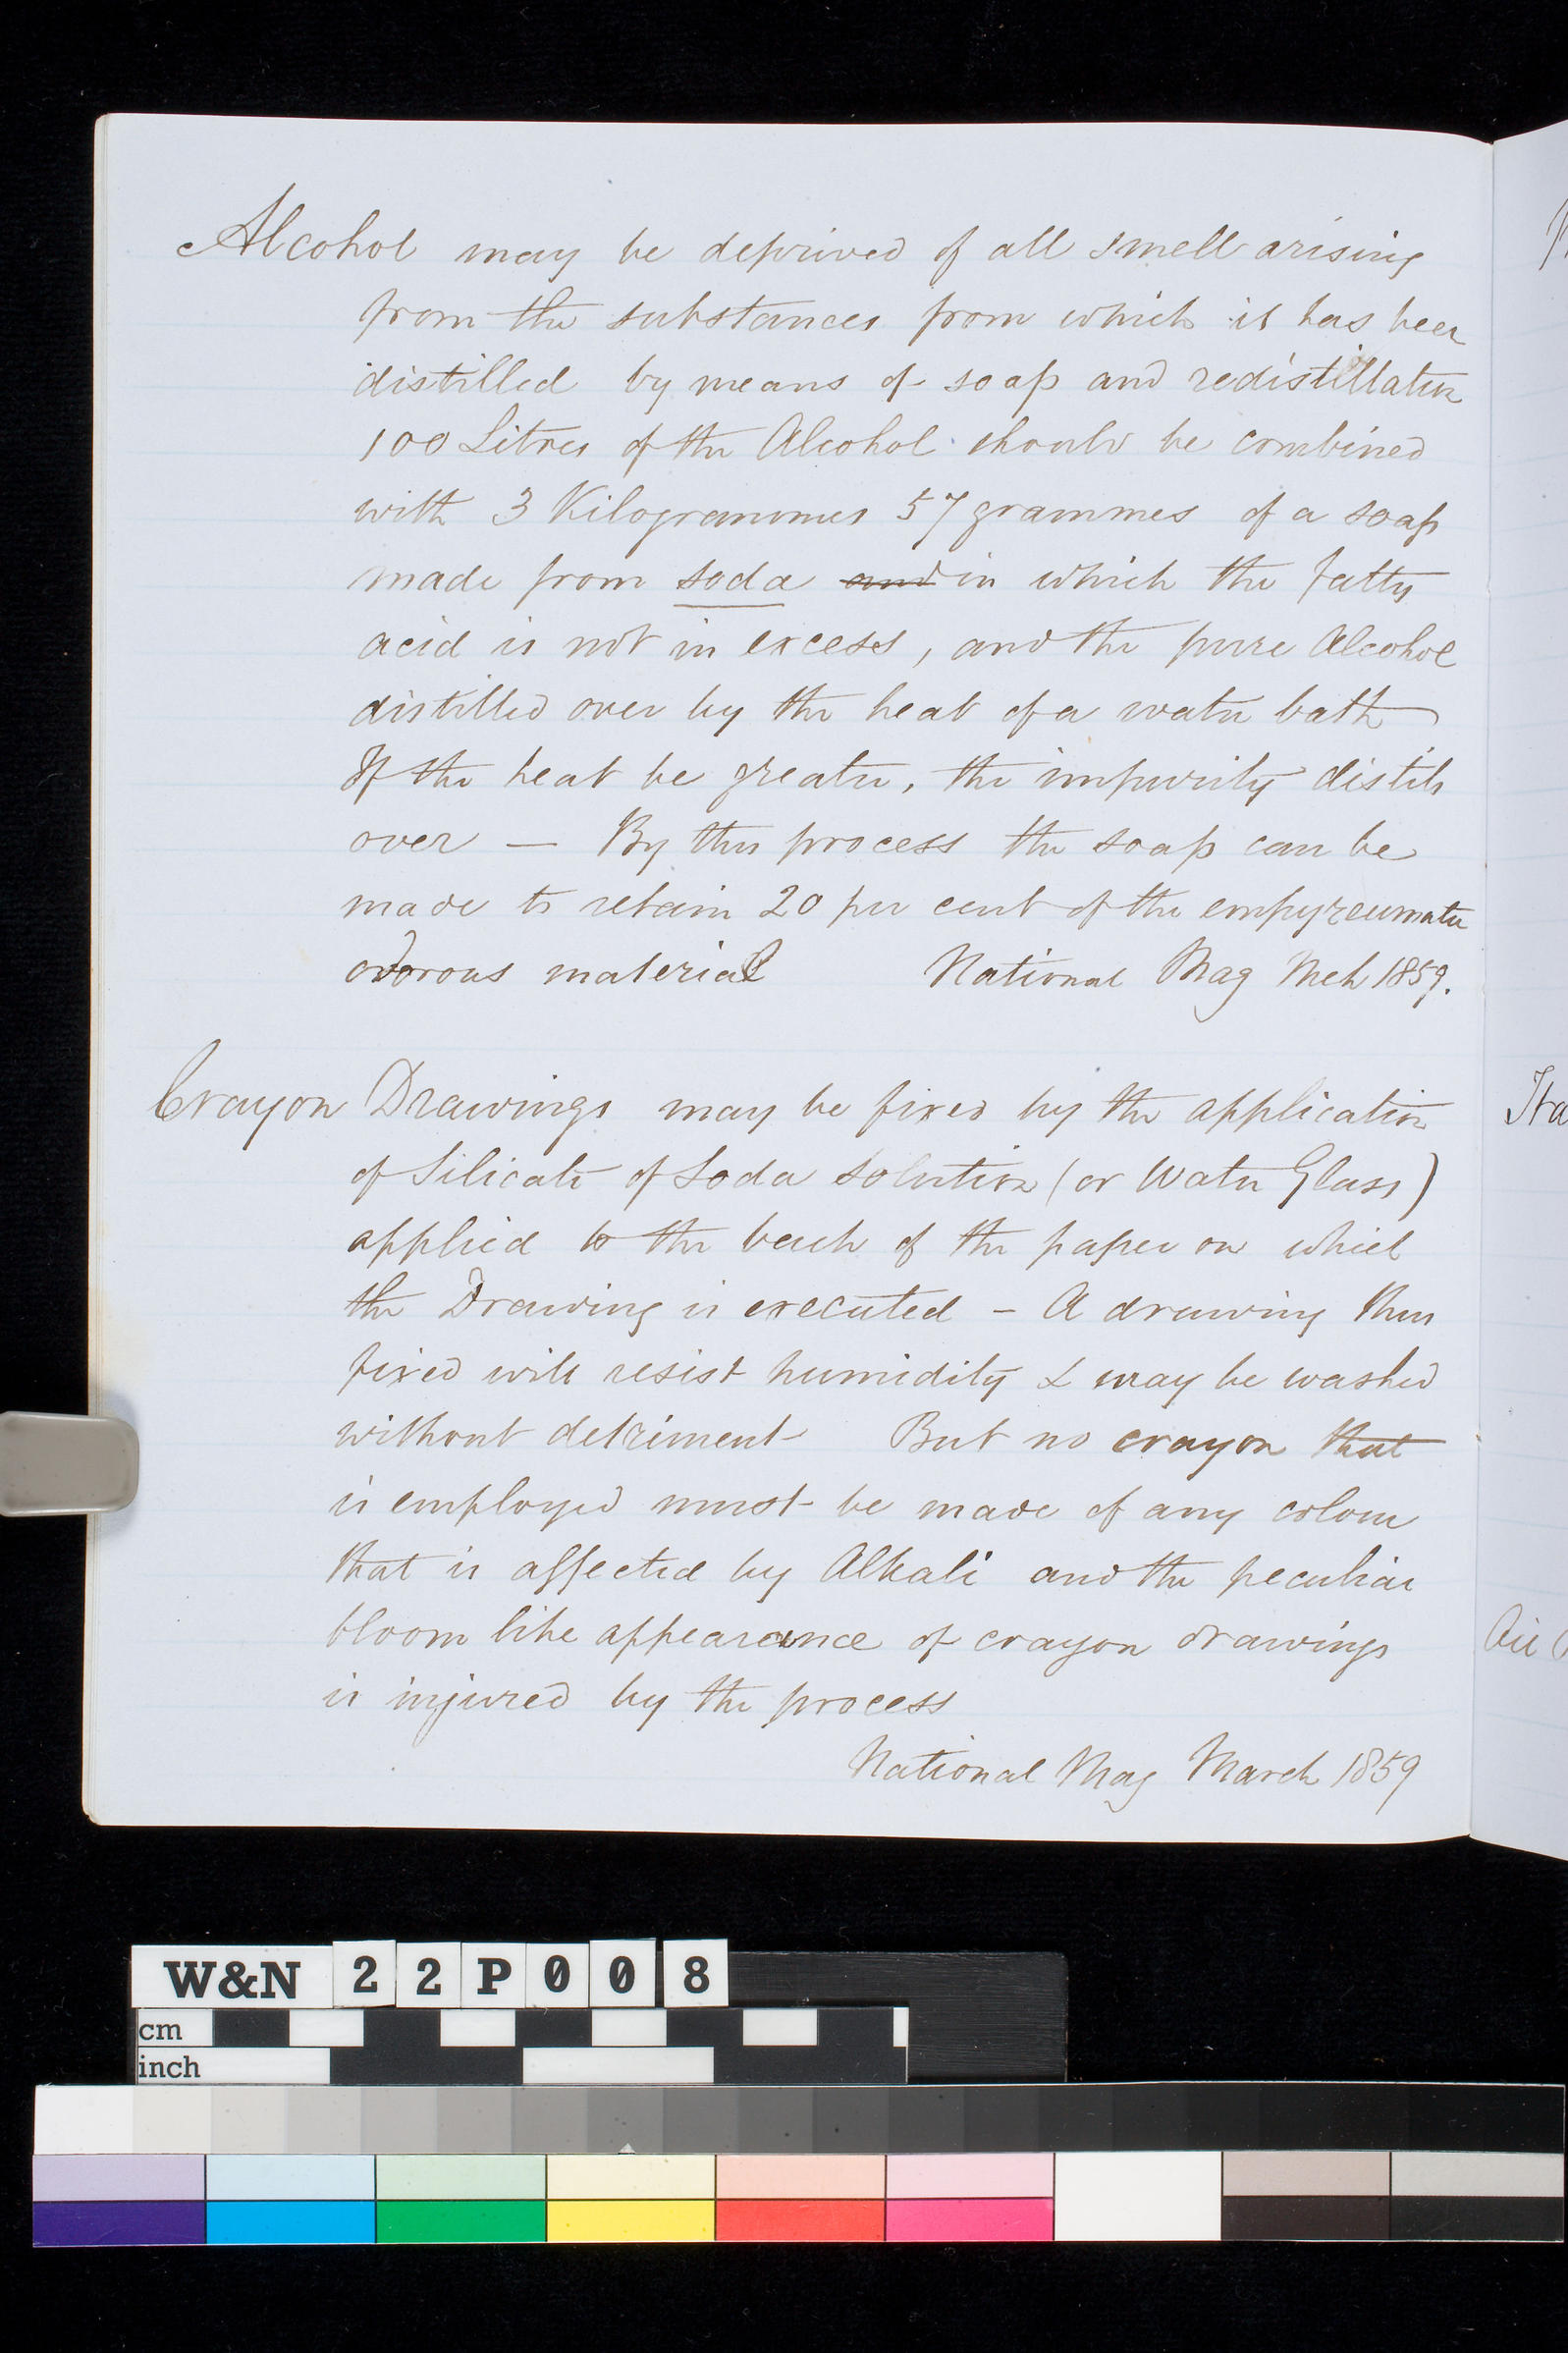 Alcohol may be deprived of all smell arising
from the substances from which it has been
distilled by means of soap and redistillation
100 Litres of the Alcohol should be combined
with 3 Kilogrammes 57 grammes of a soap
made from soda and in which the fatty
acid is not in excess, and the pure Alcohol
distilled over by the heat of a water bath
If the heat be greater, the impurity distils
over — By this process the soap can be
made to retain 20 per cent of the empyreumatic
odorous material National Mag Mch 1859.
Crayon Drawings may be fixed by the application
of Silicate of Soda solution (or Water Glass)
applied to the back of the paper on which
the Drawing is executed – A drawing thus
fixed will resist humidity & may be washed
without detriment But no crayon that
is employed must be made of any colour
that is affected by Alkali and the peculiar
bloom like appearance of crayon drawings
is injured by the process
National Mag March 1859
W&N 22P008
cm
inch